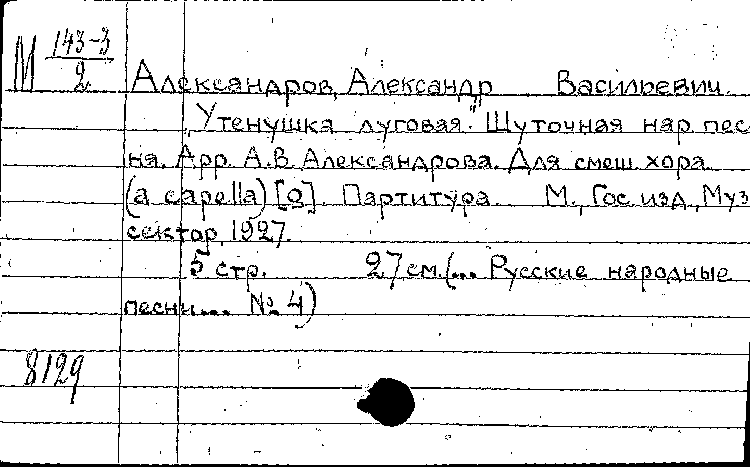 М 143-3/2
Александров, Александр Васильевич.
„Утенушка луговая." Шуточная нар. пес-
ня. Арр. А.В. Александрова. Для смеш. хора
(a capella) [о]. Партитура. М., Гос. изд., Муз.
сектор, 1927.
5 стр. 27 см. (... Русские народные
песни... № 4)
8129